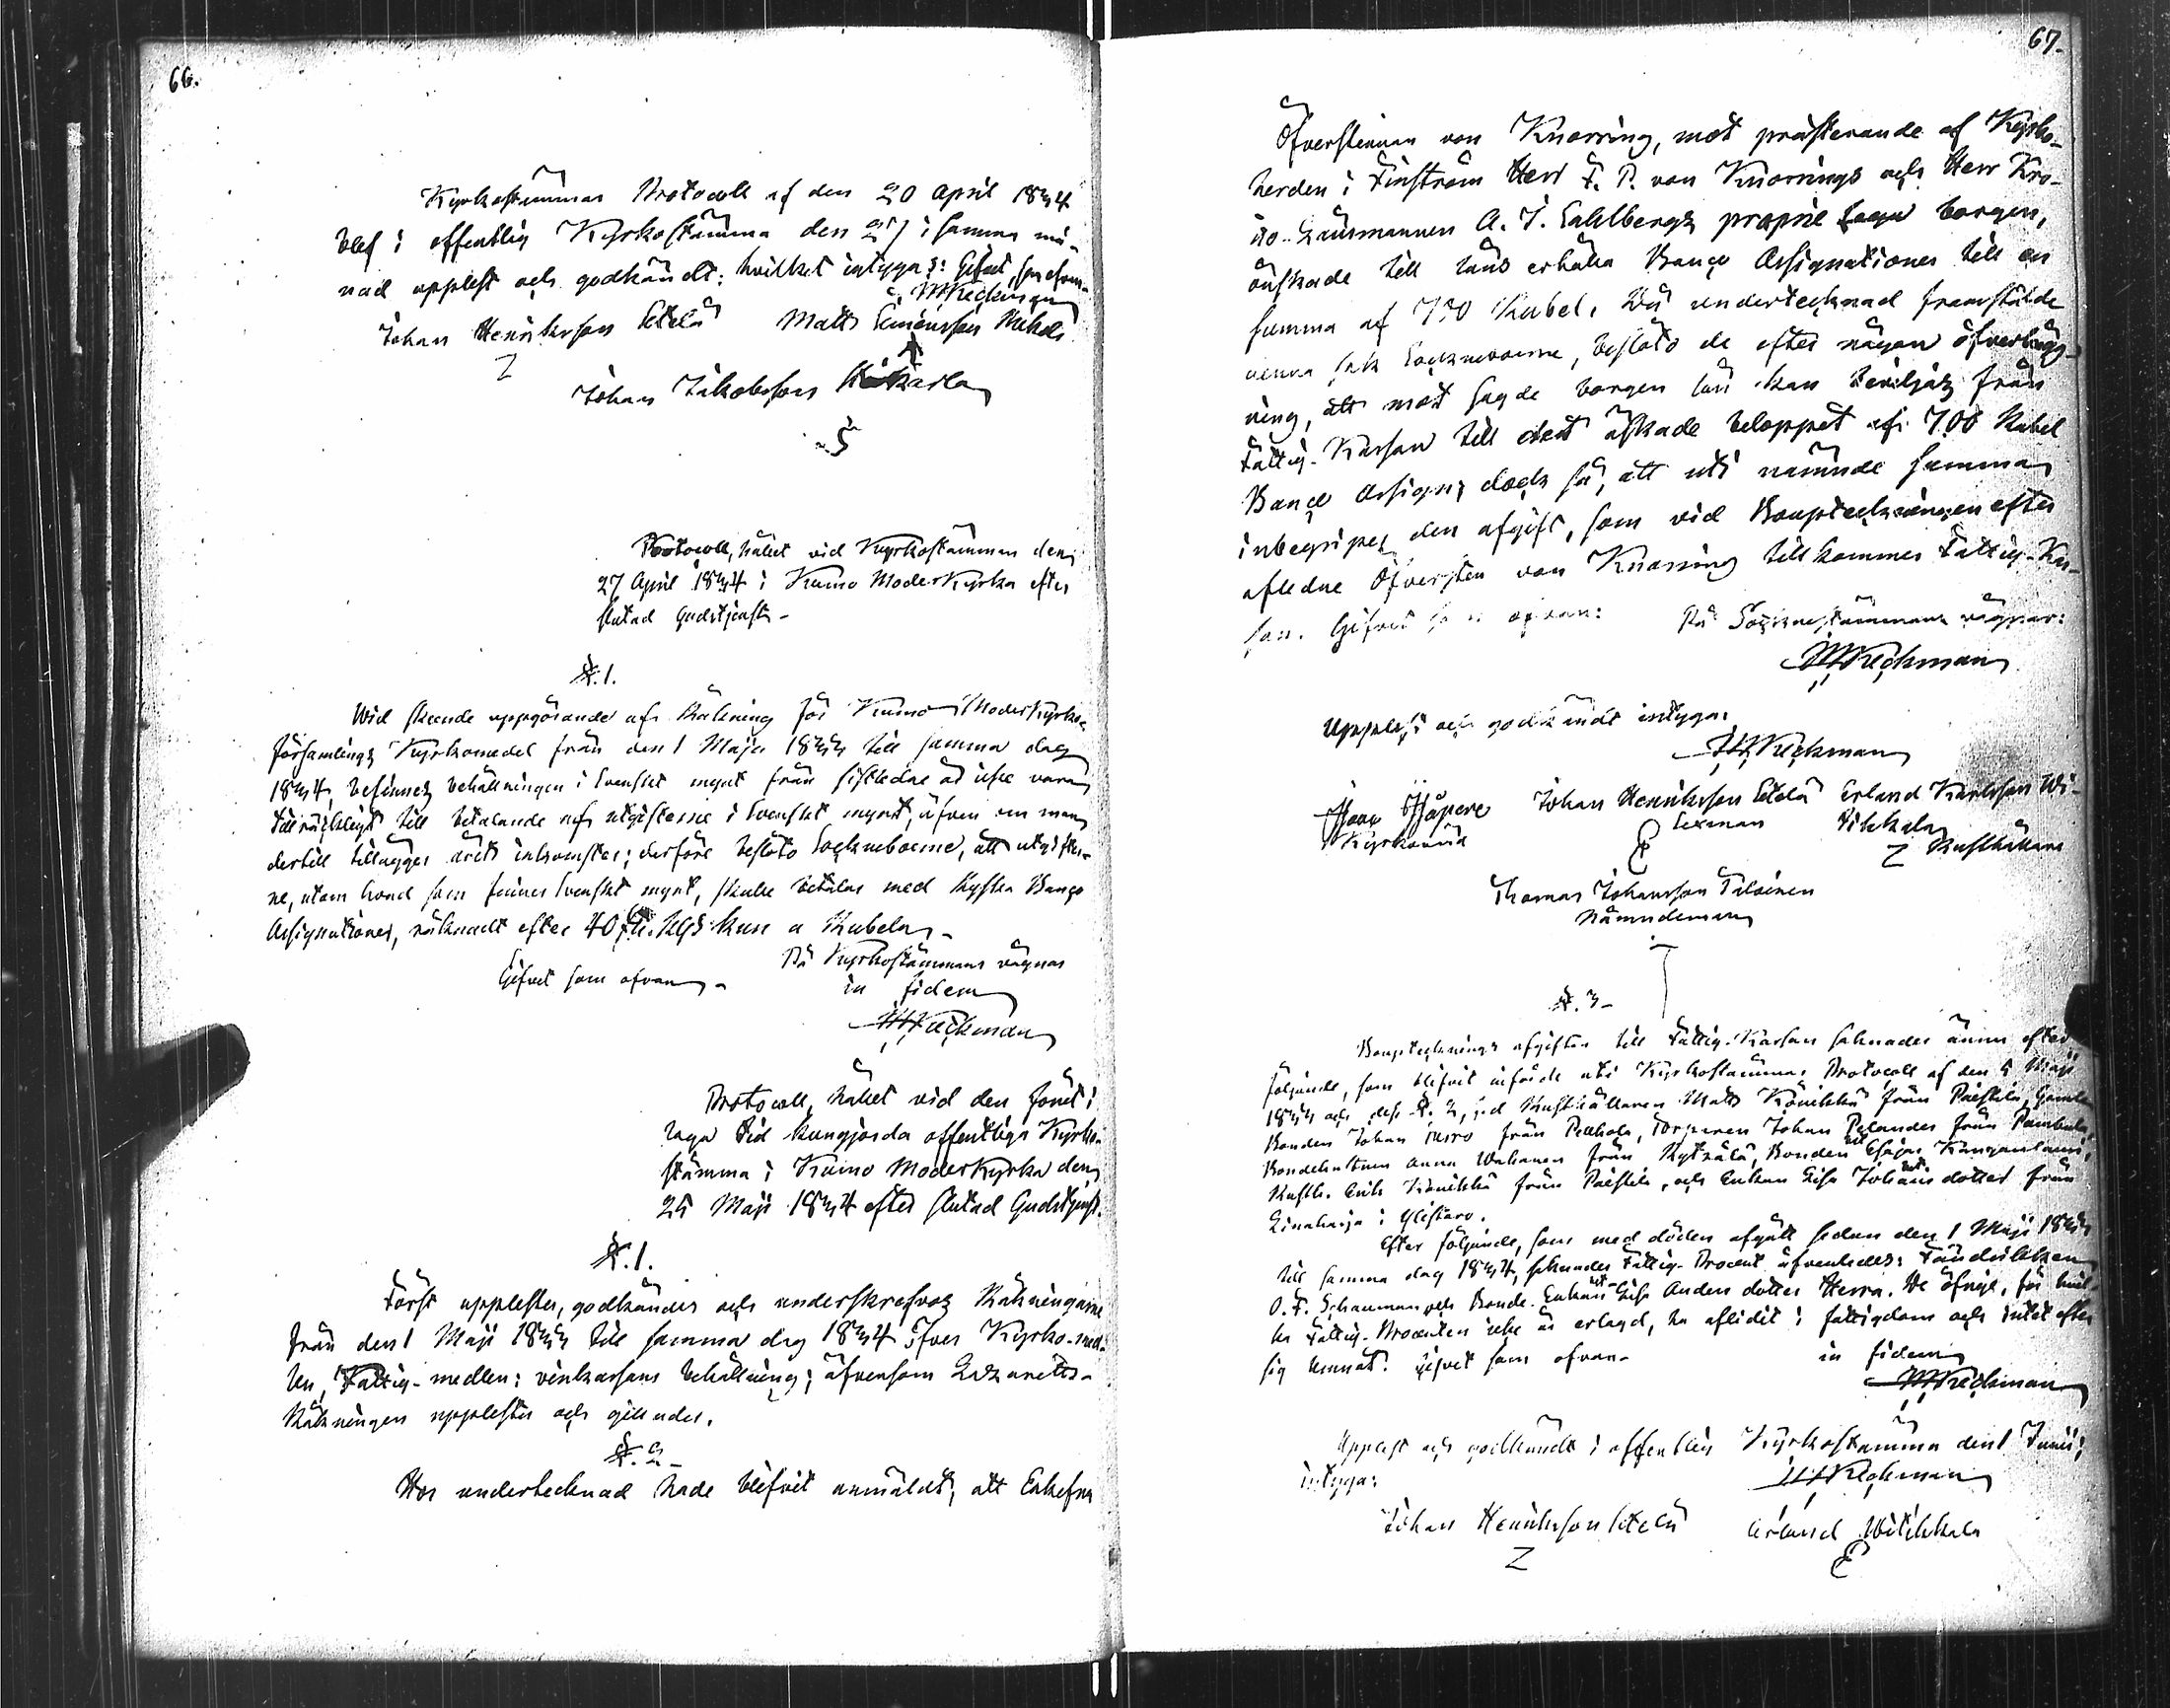 66.
Kyrkostämmas Protocoll af den 20 April 1834
blef i offentlig Kyrkostämma den 27 i samma må-
nad upplest och godkändt; hvilket intygas: Gifvet som ofvan.
M Weckman
Johan Henriksson Setelä Matts Simonsson
Johan Jakobsson
Protocoll, hållet vid Kyrkostämman den
27 April 1834 i Kumo Moderkyrka efter
slutad Gudstjenst.
§. 1.
Wid skeende uppgörande af Räkning för Kumo Moderkyrko-
församlings Kyrkomedel från den 1 Maji 1833 till samma dag
1834, befinnes behållningen i Svenskt mynt från sistledne år icke vara
tillräckligt till betalande af utgifterne i Svenskt mynt, äfven om man
dertill tillägger årets inkomster; derföre beslöto Socknеboerne, att utgifter-
ne, utom hvad som finnes Svenskt mynt, skulle betalas med Ryska Banco
Assignationer, räknadt efter 40 kun a Rubeln.
Gifvet som ofvan. På Kyrkostämmans vägnar
in fidem
M Weckman
Protocoll, hållet vid den förut i
laga tid kungjorda offentliga Kyrko-
stämma i Kumo Moderkyrka den
25 Maji 1834 efter slutad Gudstjenst.
§. 1.
Först upplestes, godkändes och underskrefvos Räkningarne
från den 1 Maji 1833 till samma dag 1834 öfver Kyrko-med-
len, Fattig-medlen: vinkassans behållning; äfvensom Lazaretts-
Räkningen upplestes och gillades.
§. 2.
Hos undertecknad hade blifvit anmäldt, att Enkefru
67.
Öfverstinnan von Knorring, mot præsterande af Kyrko-
herden i Finström Herr F. P. von Knorrings och Herr Kro-
no-Länsmannen A. J. Sahlbergs proprie borgen,
önskade till låns erhålla Banco Assignationer till en
summa af 700 Rubel. Då undertecknad framstälde
denna sak Socknеboerne, beslöto de efter någon öfverlägg-
ning, att mot sagde borgen lån kan beviljas från
Fattig-Kassan till det äskade beloppet af 700 Rubel
Banco Assign; dock så, att uti nämnde summa
inbegripes den afgift, som vid Bouptekningen efter
afledne Öfversten von Knorring tillkommer Fattig-Kas-
san. Gifvet som ofvan: På Socknestämmans vägnar:
M Weckman
Upplest och godkändt intygar
M Weckman
Johan Henriksson Setelä Erland Karlsson Wi-
Kyrkovärd Sexman tikkala
Rusthållare
Thomas Johansson Tiloinen
Nämndeman
§. 3.
Boupteknings afgiften till Fattig-Kassan saknades ännu efter
följande, som blifvit införde uti Kyrkostämmas Protocoll af den 5 Maji
1833 och dess §. 2, Rusthållaren Matts Könikkä från Paistila, Gamle
Bonden Johan från Pelhola, Torparen Johan Pelander från
Bondehustrun Anna från Kyttälä, Bonden Esajas
Rusth. Erik Könikkä från Paistila, och Enkan Lisa Johans dotter från
Linaharja i Ylistaro.
Efter följande, som med döden afgått sedan den 1 Maji 1833
till samma dag 1834, saknades Fattig-Procent äfvenledes: Fändriken
O. F. Schauman och Bonde-Enkan Lisa Anders dotter Herra. De öfrige, för hvil-
ka Fattig-Procenten icke är erlagd, ha aflidit i fattigdom och intet efter
sig lemnat. Gifvet som ofvan. in fidem
M Weckman
Upplest och godkändt i offentlig Kyrkostämma den 1 Junii;
intygar: M Weckman
Johan Henriksson Setelä Erland Witikkala